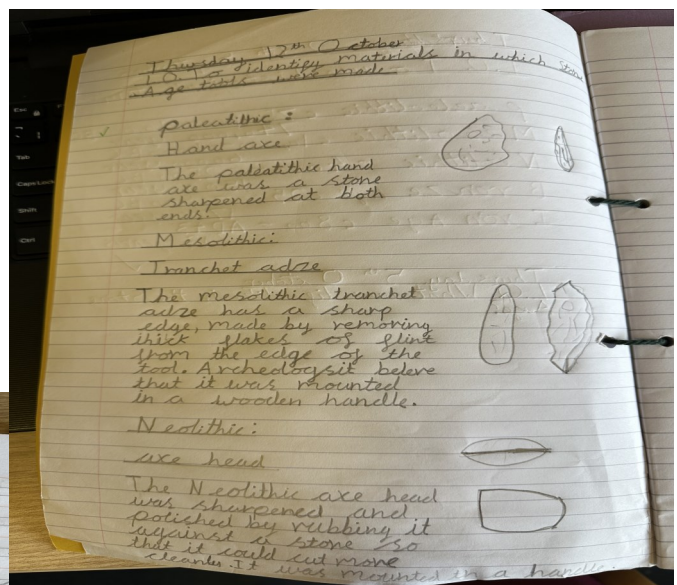 Thursday 12th October
LO To identify materials in which Stone
Age tools were made
paleatithic :
Hand axe
The paleatithic hand
axe was a stone
sharpened at both
ends.
Mesolithic:
Tranchet adze
The mesolithic tranchet
adze has a sharp
edge, made by removing
thick flakes of flint
from the edge of the
tool. Archeologsit beleve
that it was mounted
in a wooden handle.
Neolithic:
axe head
The Neolithic axe head
was sharpened and
polished by rubbing it
against a stone so
that it could cut more
cleanley. It was mounted in a handle.
Esc
Tab
Caps Lock
Shift
Ctrl